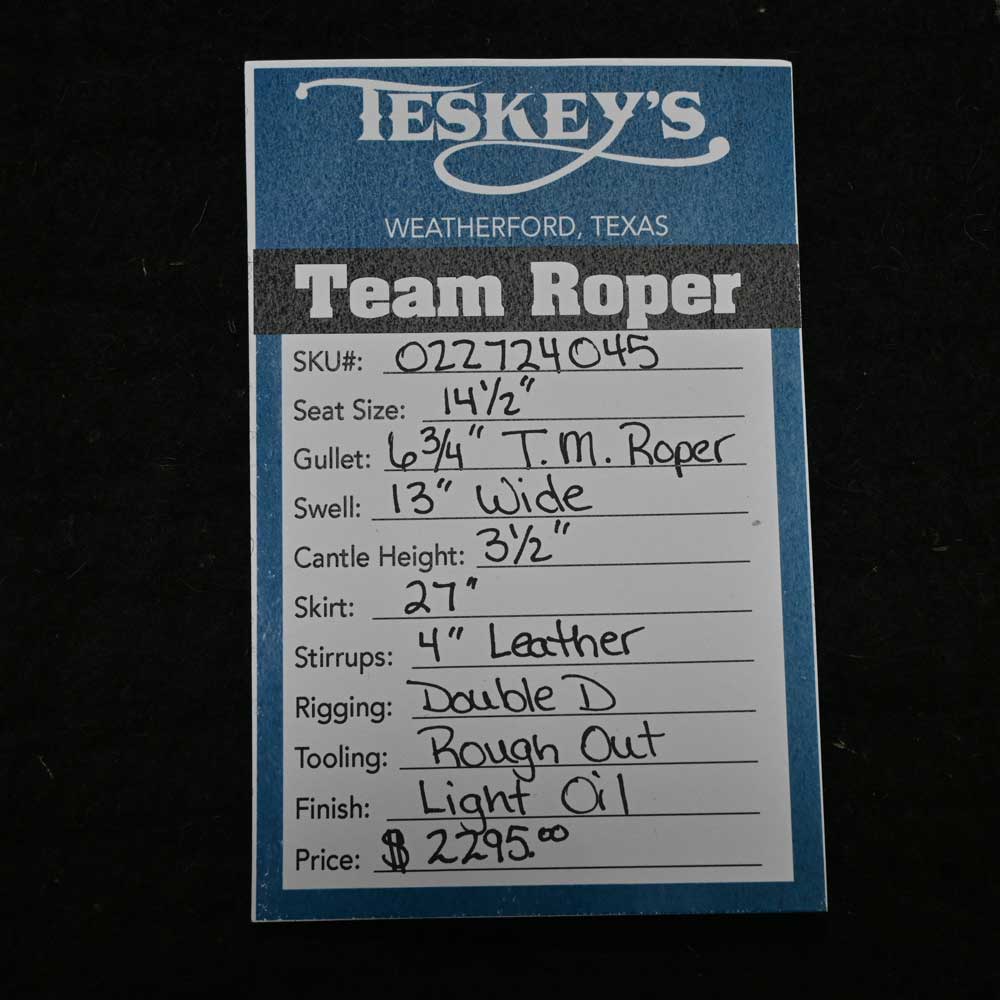 TESKEY'S
WEATHERFORD, TEXAS
Team Roper
SKU#: 022724045
Seat Size: 14 1/2"
Gullet: 6 3/4" T.M. Roper
Swell: 13" Wide
Cantle Height: 3 1/2"
Skirt: 27"
Stirrups: 4" Leather
Rigging: Double D
Tooling: Rough Out
Finish: Light Oil
Price: $ 2295.00